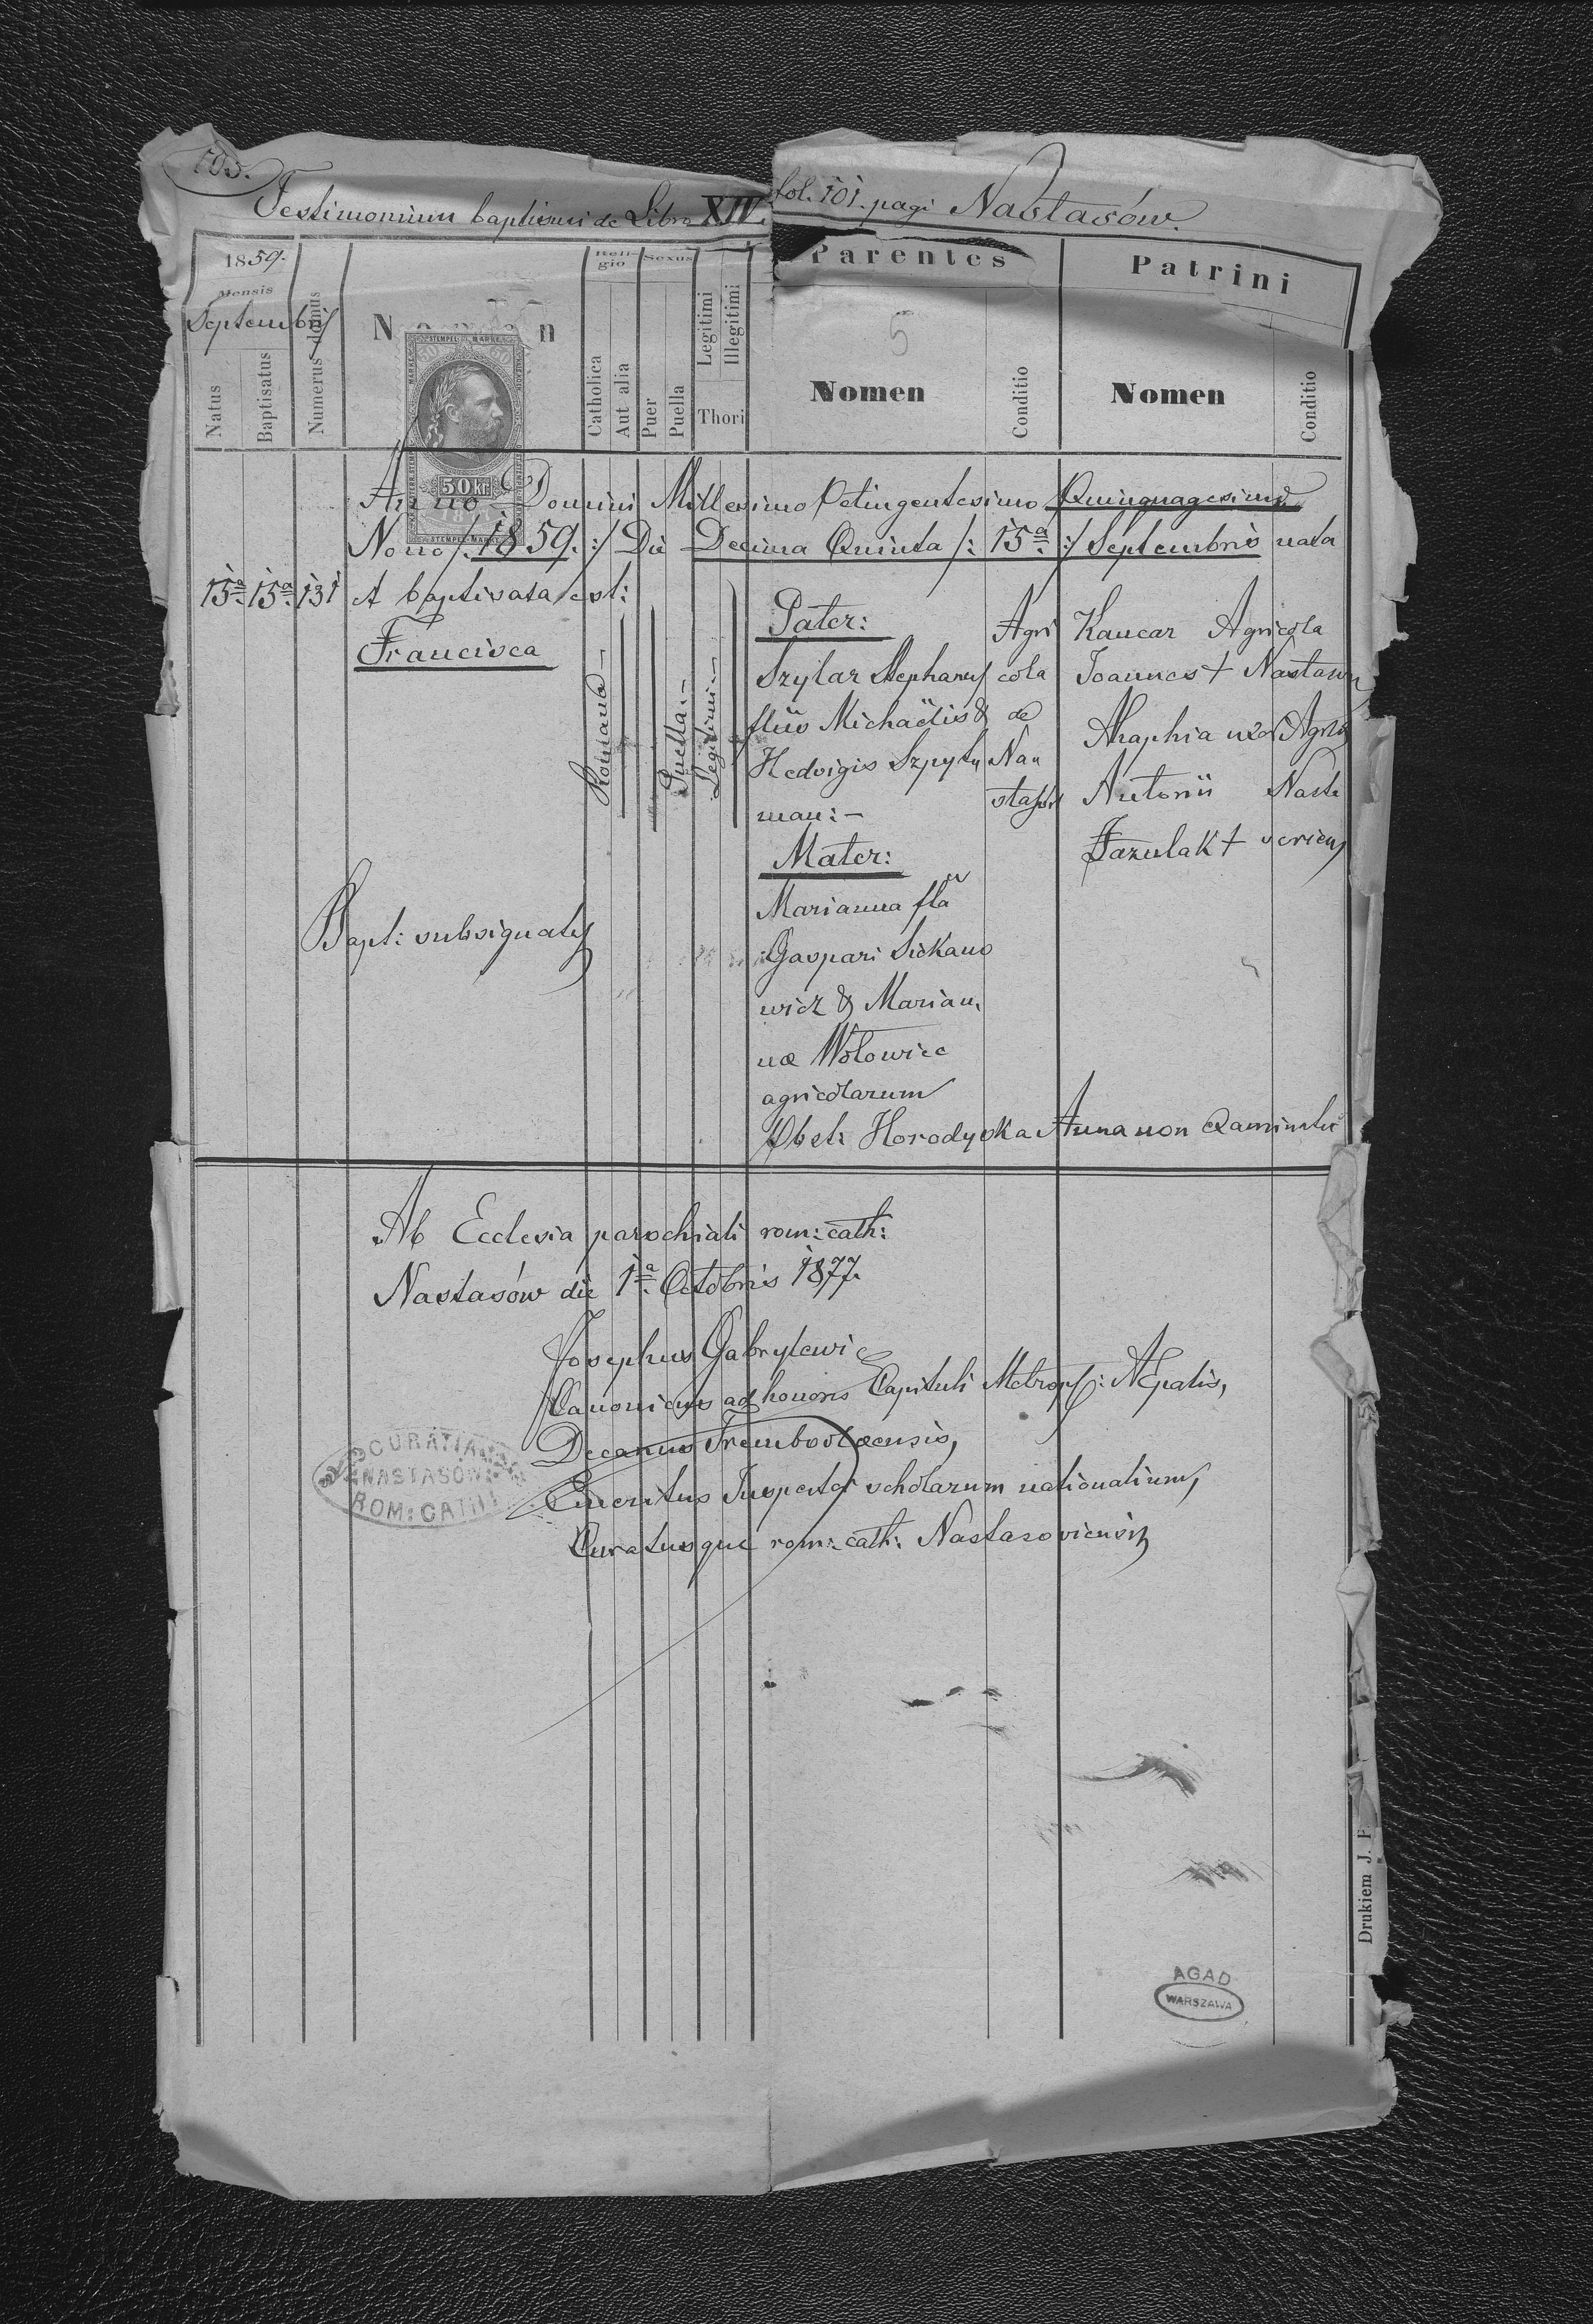 105.
Testimonium baptismi de Libro XIV. fol. 101. pagi Nastasów.
1859.
Mensis
Septembris
Natus
Baptisatus
Numerus domus
N n
Religio
Catholica
Aut alia
Sexus
Puer
Puella
Legitimi
Illegitimi
Thori
Parentes
5
Nomen
Conditio
Patrini
Nomen
Conditio
STEMPEL MARKE
50 kr
STEMPEL MARKE
Anno Domini Millesimo Octingentesimo Quinquagesimo
Nono /: 1859. :/ Die Decima Quinta /: 15ª :/ Septembris nata
15ª 15ª 131 et baptisata est:
Francisca
Romana
Puella
Legitimi
Pater:
Szylar Stephanus
filius Michaëlis &
Hedvigis Szpytu
man:
Agri
cola
de
Nas
Mater:
Marianna fla
Gaspari Sickano
wicz & Marian
næ Wołowiec
agricolarum
Obst: Horodyska Anna non examinata
Kaucar Agricola
Joannes +
Ahaphia uxor
Antonii Nasta
Jazulak +
Bapt: subsignatus
Ab Ecclesia parochiali rom: cath:
Nastasów die 1ª Octobris 1877.
Josephus Gabrylewicz
Canonicus ad honores Capituli Metropol: AEpalis,
Decanus Trembovlaensis,
Emeritus Inspector scholarum nationalium,
Curatusque rom: cath: Nastasoviensis
CURATIA
NASTASÓW
ROM: CATH:
Drukiem J. P
AGAD
WARSZAWA